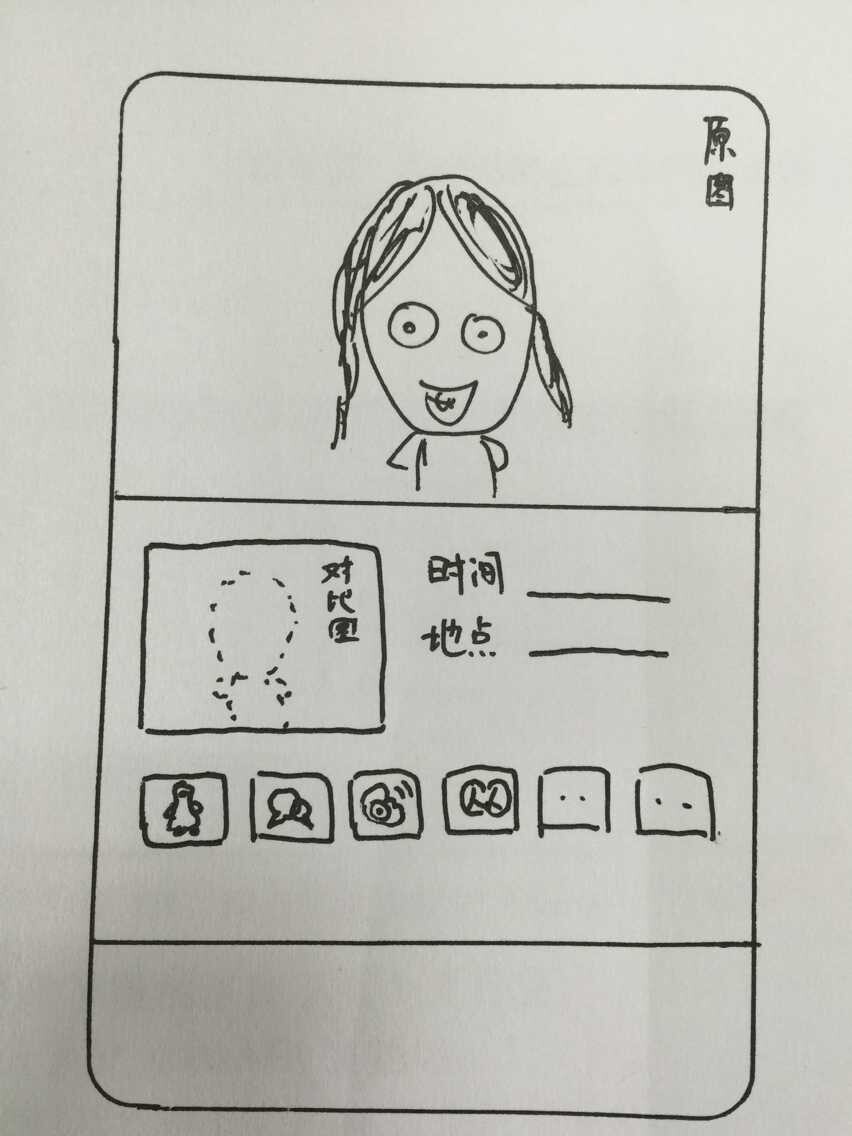 原图
对比图
时间
地点